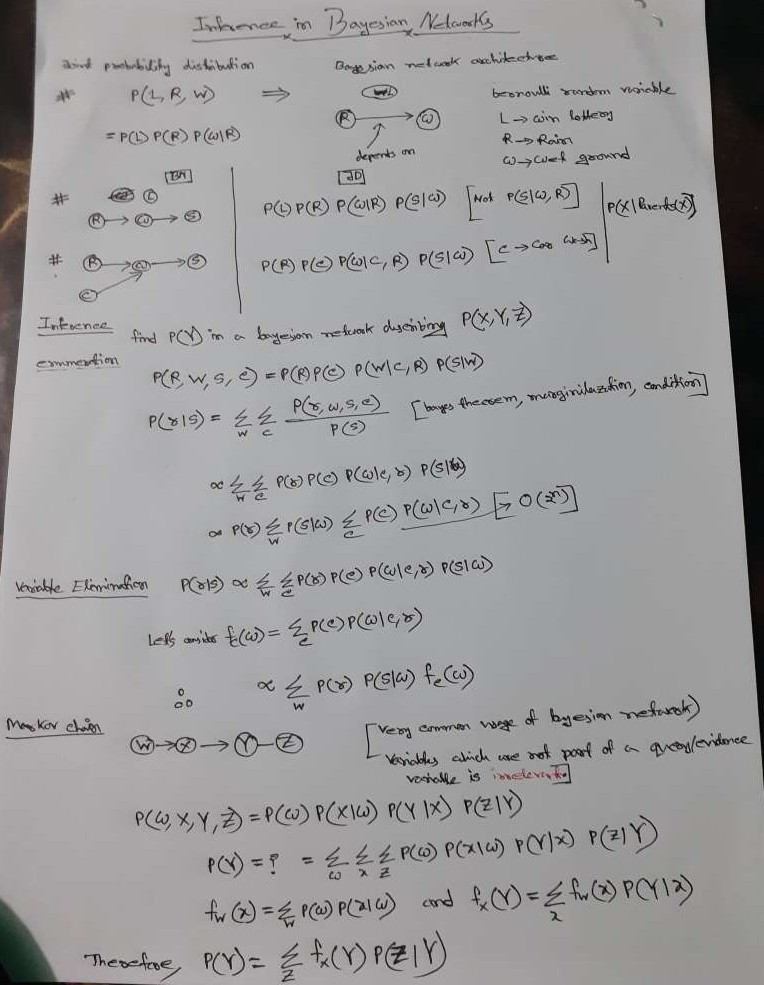 Inference in Bayesian Networks
Joint probability distribution Bayesian network architecture
# P(L, R, W) ⇒ L bernoulli random variable
R → W L → win lottery
= P(L) P(R) P(W|R) depends on R → Rain
W → wet ground
BN JD
# L P(L) P(R) P(W|R) P(S|W) [Not P(S|W, R)] P(X|Parents(X))
R → W → S
# R → W → S P(R) P(C) P(W|C, R) P(S|W) [C → Car wash]
C
Inference find P(Y) in a bayesian network describing P(X,Y,Z)
enumeration
P(R, W, S, C) = P(R)P(C) P(W|C, R) P(S|W)
P(r|s) = Σ_W Σ_C P(r, w, s, c) / P(s) [bayes theorem, marginilazation, condition]
∝ Σ_W Σ_C P(r) P(c) P(w|c, r) P(s|w)
∝ P(r) Σ_W P(s|w) Σ_C P(c) P(w|c, r) [→ O(2ⁿ)]
Variable Elimination P(r|s) ∝ Σ_W Σ_C P(r) P(c) P(w|c, r) P(s|w)
Let's consider f_c(w) = Σ_C P(c) P(w|c, r)
∴ ∝ Σ_W P(r) P(s|w) f_c(w)
Markov chain
W → X → Y — Z [very common usage of bayesian network)
Variables which are not part of a query/evidence
variable is irrelevant.]
P(W, X, Y, Z) = P(W) P(X|W) P(Y|X) P(Z|Y)
P(Y) = ? = Σ_w Σ_x Σ_z P(w) P(x|w) P(Y|x) P(z|Y)
f_w(x) = Σ_w P(w) P(x|w) and f_x(Y) = Σ_x f_w(x) P(Y|x)
Therefore, P(Y) = Σ_Z f_x(Y) P(Z|Y)